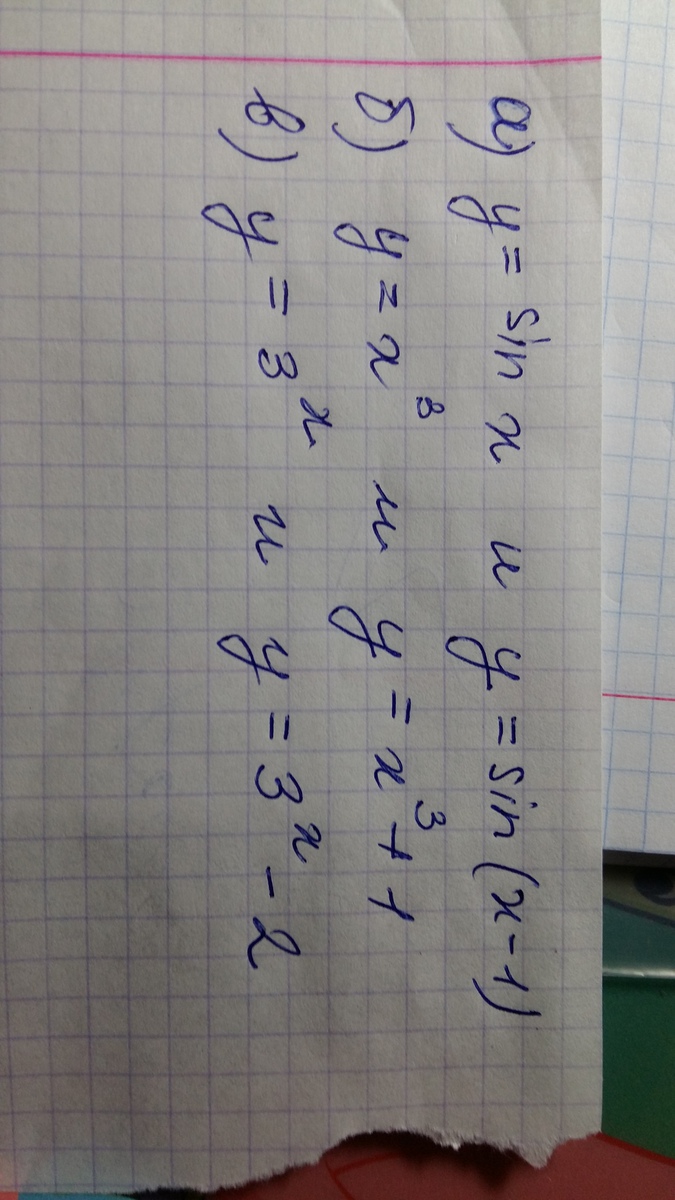 а) y = sin x и y = sin(x-1)
б) y = x³ и y = x³ + 1
в) y = 3ˣ и y = 3ˣ - 2